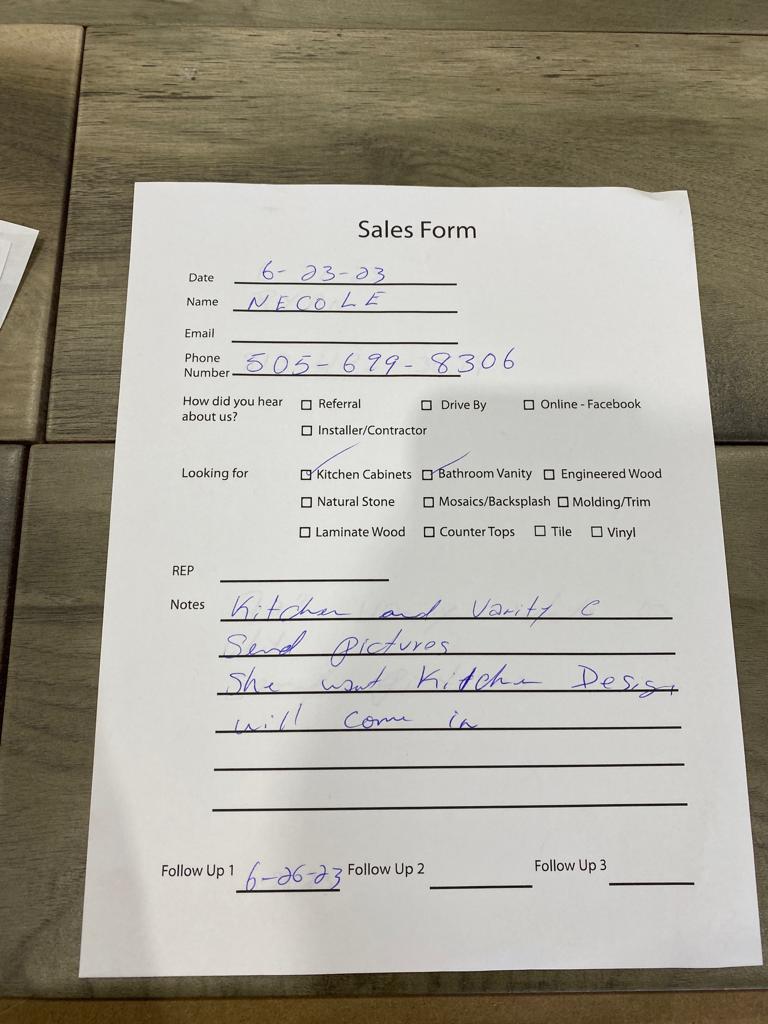 Sales Form
Date 6-23-23
Name NECOLE
Email
Phone Number 505-699-8306
How did you hear about us? ☐ Referral ☐ Drive By ☐ Online - Facebook
☐ Installer/Contractor
Looking for ☑ Kitchen Cabinets ☑ Bathroom Vanity ☐ Engineered Wood
☐ Natural Stone ☐ Mosaics/Backsplash ☐ Molding/Trim
☐ Laminate Wood ☐ Counter Tops ☐ Tile ☐ Vinyl
REP
Notes Kitchen and Vanity C
Send pictures
She want Kitchen Design
will come in
Follow Up 1 6-26-23 Follow Up 2 Follow Up 3